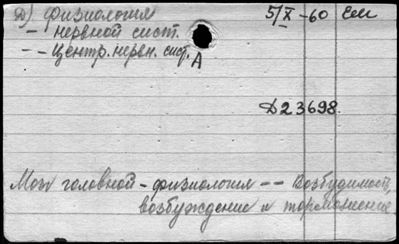 д) физиология 5/X-60
- нервной сист.
-- центр. нервн. сист.
А
Д23698.
Мозг головной - физиология -- Возбудимость,
возбуждение и торможение